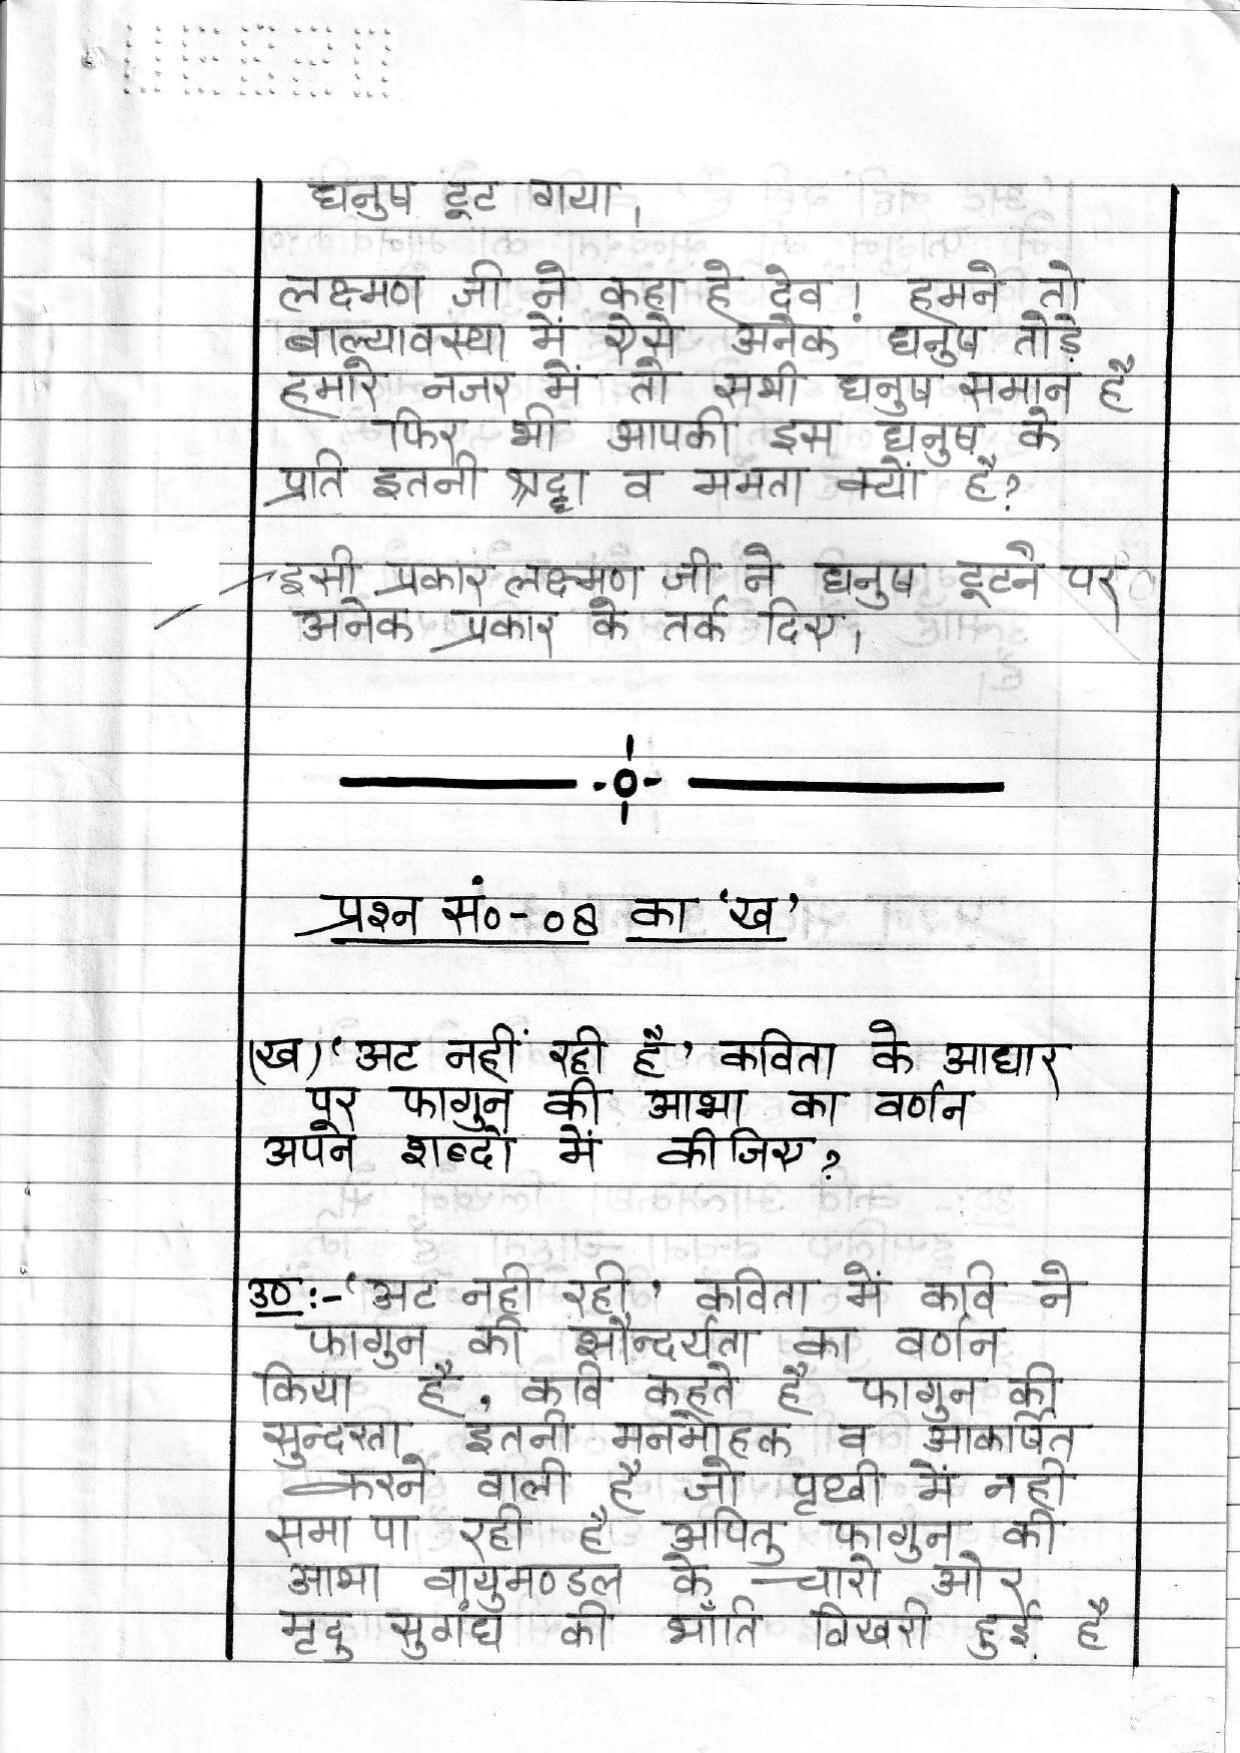 धनुष टूट गया।
लक्ष्मण जी ने कहा हे देव! हमने तो
बाल्यावस्था में ऐसे अनेक धनुष तोड़े
हमारे नजर में तो सभी धनुष समान है
फिर भी आपकी इस धनुष के
प्रति इतनी श्रद्धा व ममता क्यों है?
इसी प्रकार लक्ष्मण जी ने धनुष टूटने पर
अनेक प्रकार के तर्क दिए।
प्रश्न सं०-०8 का 'ख'
(ख) 'अट नहीं रही है' कविता के आधार
पर फागुन की आभा का वर्णन
अपने शब्दों में कीजिए?
उ०:- 'अट नही रही' कविता में कवि ने
फागुन की सौन्दर्यता का वर्णन
किया है, कवि कहते है फागुन की
सुन्दरता इतनी मनमोहक व आकर्षित
करने वाली है जो पृथ्वी में नही
समा पा रही है अपितु फागुन की
आभा वायुमण्डल के चारो ओर
मृदु सुगंध की भाँति बिखरी हुई है